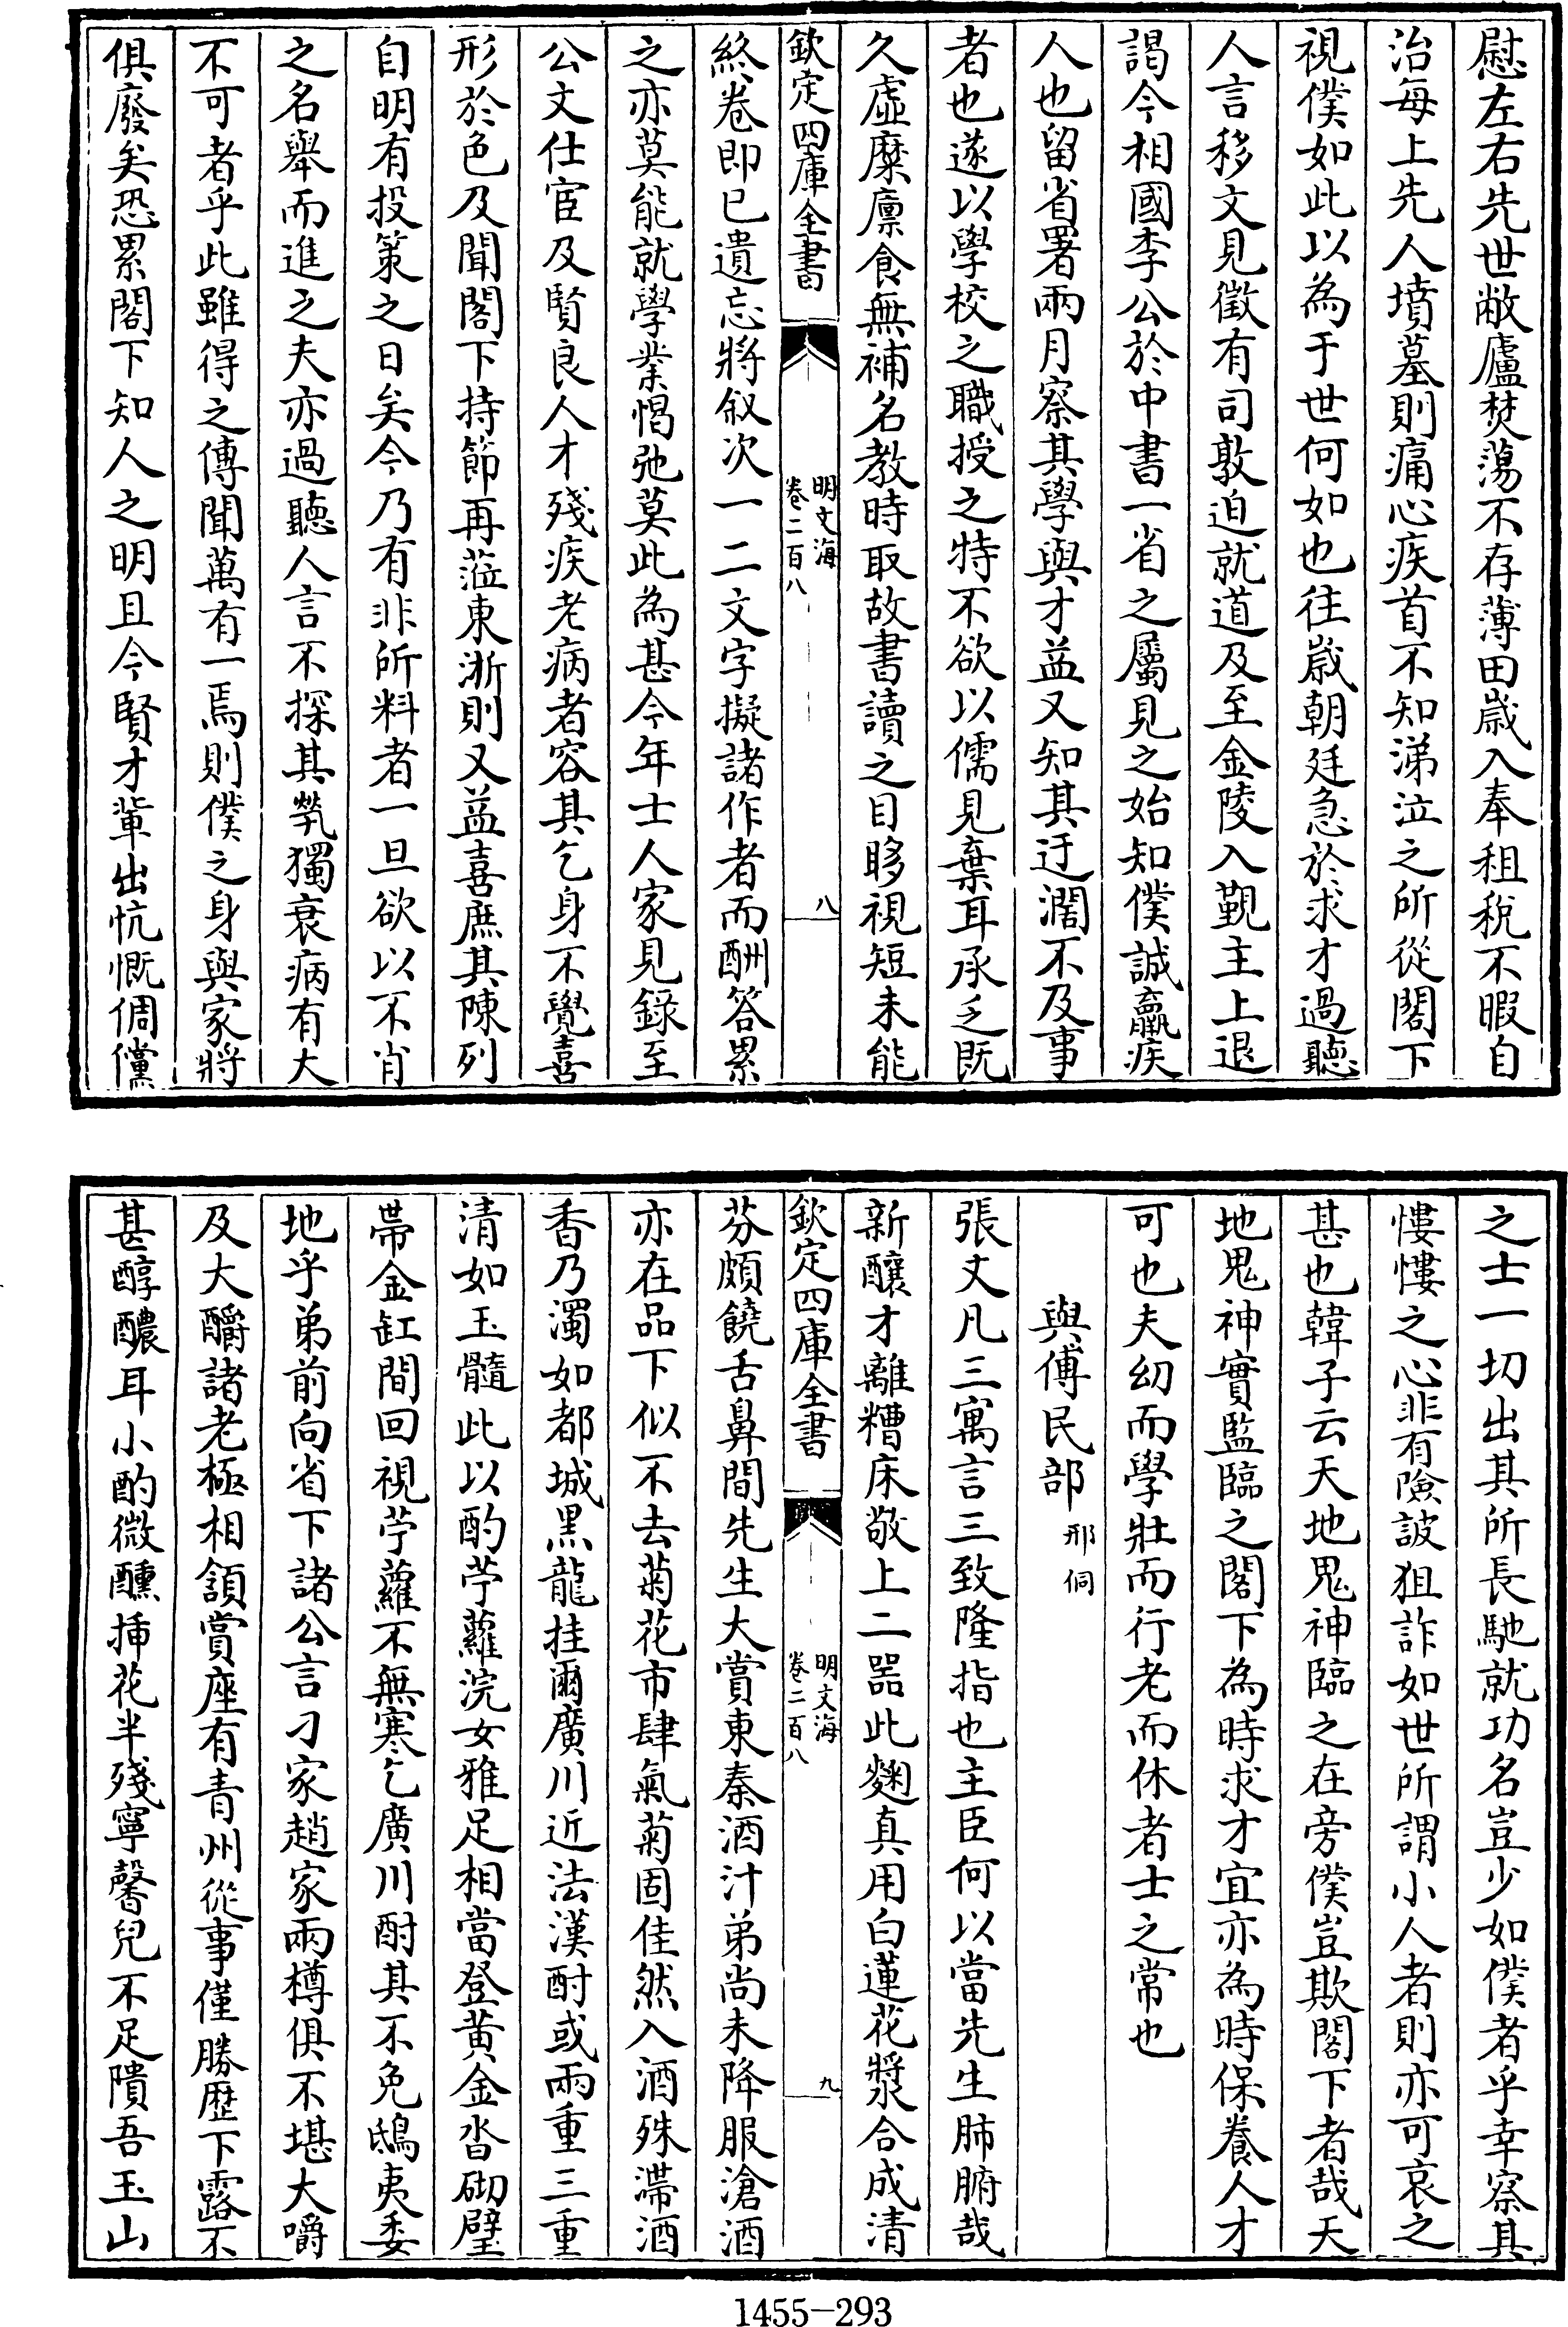 慰左右先世敝廬焚蕩不存薄田歲入奉租稅不暇自
治每上先人墳墓則痛心疾首不知涕泣之所從閣下
視僕如此以為于世何如也往歲朝廷急於求才過聽
人言移文見徵有司敦迫就道及至金陵入覲主上退
謁今相國李公於中書一省之屬見之始知僕誠羸疾
人也留省署兩月察其學與才益又知其迂濶不及事
者也遂以學校之職授之特不欲以儒見棄耳承乏既
久虛糜廩食無補名教時取故書讀之目眵視短未能
欽定四庫全書
明文海
卷二百八
八
終卷即已遺忘將叙次一二文字擬諸作者而酬答累
之亦莫能就學業惕弛莫此為甚今年士人家見錄至
公文仕宦及賢良人才殘疾老病者容其乞身不覺喜
形於色及聞閣下持節再蒞東浙則又益喜庶其陳列
自明有投策之日矣今乃有非所料者一旦欲以不肖
之名舉而進之夫亦過聽人言不探其煢獨衰病有大
不可者乎此雖得之傳聞萬有一焉則僕之身與家將
俱廢矣恐累閣下知人之明且今賢才輩出忼慨倜儻
之士一切出其所長馳就功名豈少如僕者乎幸察其
慺慺之心非有險詖狙詐如世所謂小人者則亦可哀之
甚也韓子云天地鬼神臨之在旁僕豈欺閣下者哉天
地鬼神實監臨之閣下為時求才宜亦為時保養人才
可也夫幼而學壯而行老而休者士之常也
與傅民部 邢侗
張丈凡三寓言三致隆指也主臣何以當先生肺腑哉
新釀才離糟床敬上二器此麴真用白蓮花漿合成清
欽定四庫全書
明文海
卷二百八
九
芬頗饒舌鼻間先生大賞東秦酒汁弟尚未降服滄酒
亦在品下似不去菊花市肆氣菊固佳然入酒殊滯酒
香乃濁如都城黑龍挂爾廣川近法漢酎或兩重三重
清如玉髓此以酌苧蘿浣女雅足相當登黃金沓砌璧
帶金缸間回視苧蘿不無寒乞廣川酎其不免鴟夷委
地乎弟前向省下諸公言刁家趙家兩樽俱不堪大嚼
及大釂諸老極相頷賞座有青州從事僅勝歷下露不
甚醇醲耳小酌微醺揷花半殘寧馨兒不足隤吾玉山
1455-293